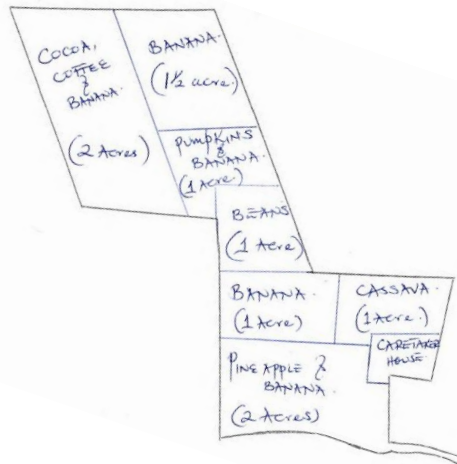 COCOA,
COFFEE
&
BANANA.
(2 Acres)
BANANA.
(1½ acre.)
PUMPKINS
&
BANANA.
(1 Acre)
BEANS
(1 Acre)
BANANA.
(1 Acre)
CASSAVA.
(1 Acre.)
CARETAKER
HOUSE
PINEAPPLE &
BANANA.
(2 Acres)